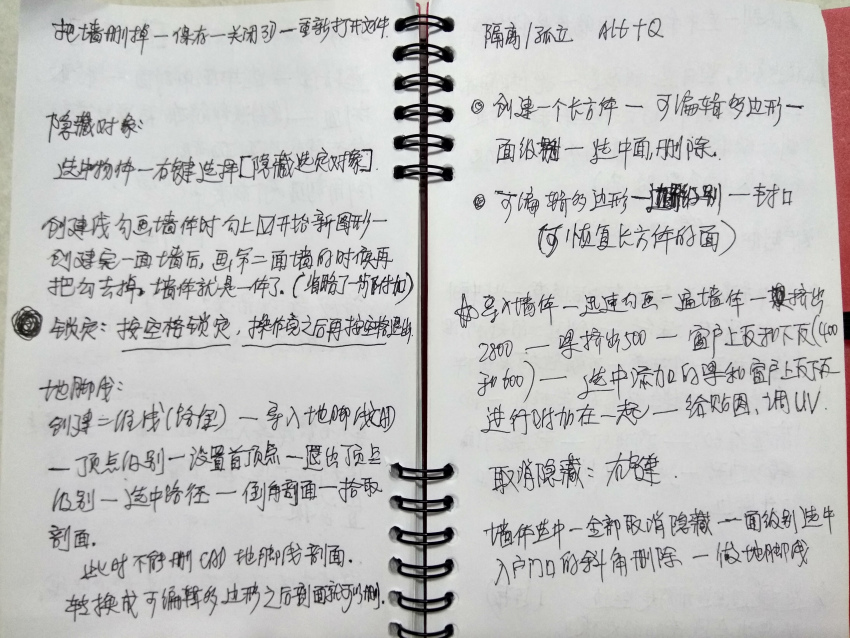 把墙删掉一保存一关闭3D一重新打开文件.
隐藏对象:
选中物件一右键选择[隐藏选定对象].
创建线勾画墙件时勾上☑开始新图形一
创建完一面墙后,画第二面墙的时候再
把勾去掉。墙件就是一件了.(省略了一步附加)
锁定:按空格锁定,操作完之后再按空格退出.
地脚线:
创建二维线(路径)一导入地脚线CAD
一顶点级别一设置首顶点一退出顶点
级别一选中路径一倒角剖面一拾取
剖面.
此时不能删CAD地脚线剖面.
转换成可编辑多边形之后剖面就可以删.
隔离/孤立 Alt+Q
◎创建一个长方体一可编辑多边形一
面级别一选中面,删除.
◎可编辑多边形一边界级别一封口
(可恢复长方体的面)
☆导入墙体一迅速勾画一遍墙体一挤出
2800一梁挤出500一窗户上瓦和下瓦(400
和600)一选中添加的梁和窗户上瓦下瓦
进行附加在一起一给贴图,调UV.
取消隐藏:右键.
墙体选中一全部取消隐藏一面级别选中
入户门口的斜角删除一做地脚线